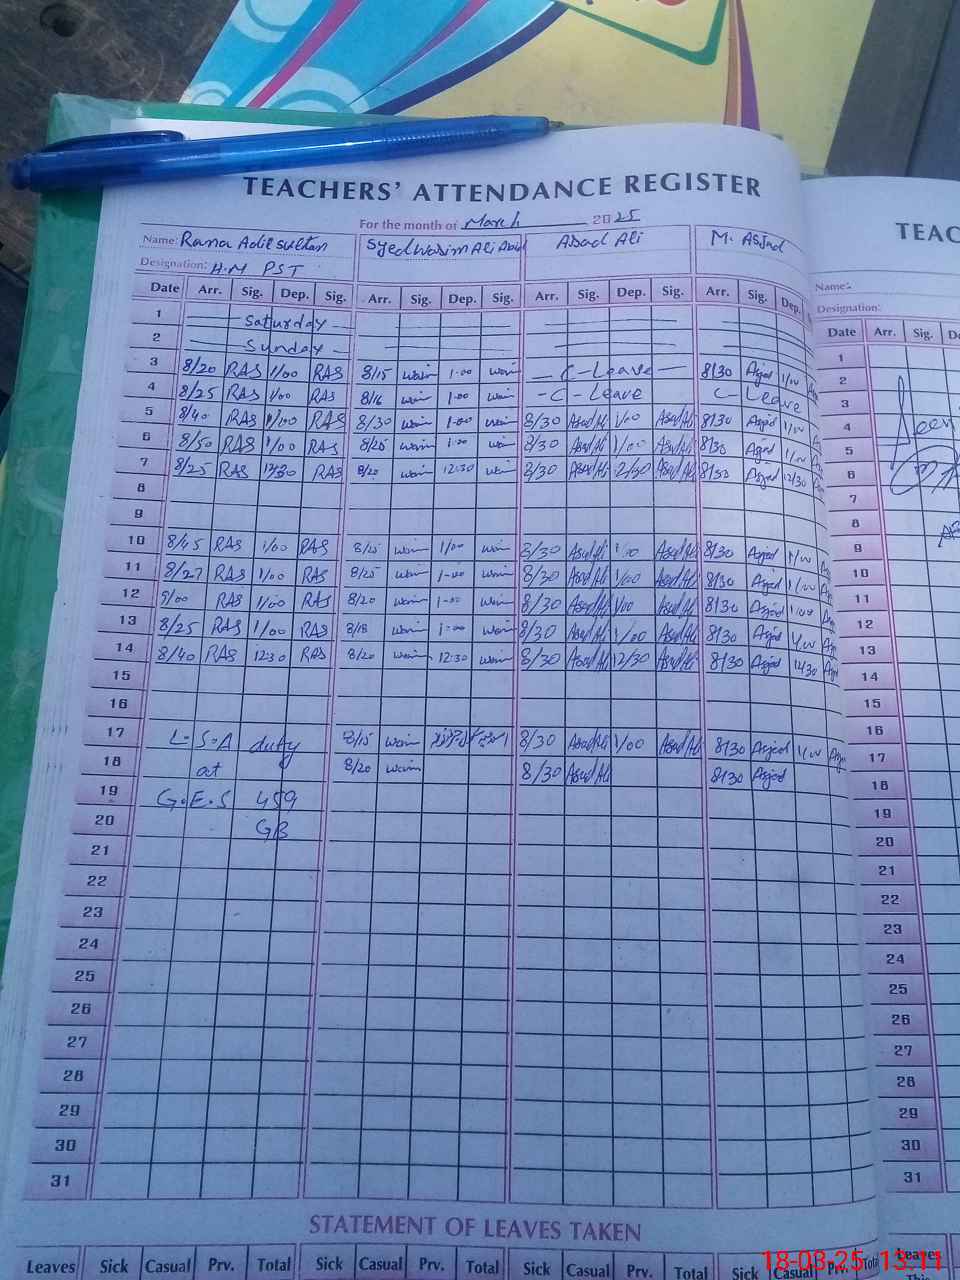 TEACHERS' ATTENDANCE REGISTER
For the month of March 2025
Name: Rana Adil Sultan Syed Wasim Ali Abid Asad Ali M. Asjad
Designation: H.M PST
Date Arr. Sig. Dep. Sig. Arr. Sig. Dep. Sig. Arr. Sig. Dep. Sig. Arr. Sig. Dep.
1 Saturday
2 Sunday
3 8/20 RAS 1/00 RAS 8/15 1-00 C-Leave 8/30 Asjad 1/00
4 8/25 RAS 1/00 RAS 8/16 1-00 -C-Leave C-Leave
5 8/40 RAS 1/00 RAS 8/30 1-00 8/30 Asad Ali 1/00 Asad Ali 8/30 Asjad 1/00
6 8/50 RAS 1/00 RAS 8/25 1-00 8/30 Asad Ali 1/00 Asad Ali 8/30 Asjad 1/00
7 8/25 RAS RAS 8/20 12:30 8/30 Asad Ali 12/30 Asad Ali 8/30 Asjad 12/30
8
9
10 8/45 RAS 1/00 RAS 8/25 1/00 8/30 Asad Ali Asad Ali 8/30 Asjad 1/00
11 8/27 RAS 1/00 RAS 8/25 1-00 8/30 Asad Ali 1/00 Asad Ali 8/30 Asjad 1/00
12 9/00 RAS 1/00 RAS 8/20 1-00 8/30 Asad Ali 1/00 Asad Ali 8/30 Asjad 1/00
13 8/25 RAS 1/00 RAS 8/18 1-00 8/30 Asad Ali 1/00 Asad Ali 8/30 Asjad 1/00
14 8/40 RAS 12:30 RAS 8/20 12:30 8/30 Asad Ali 12/30 Asad Ali 8/30 Asjad
15
16
17 L.S.A duty 8/15 8/30 Asad Ali 1/00 Asad Ali 8/30 Asjad 1/00
18 at 8/20 8/30 Asad Ali 8/30 Asjad
19 G.E.S 459
20 GB
21
22
23
24
25
26
27
28
29
30
31
STATEMENT OF LEAVES TAKEN
Leaves Sick Casual Prv. Total Sick Casual Prv. Total Sick Casual Prv. Total Sick Casual Prv. Total
TEAC
Name:
Designation:
Date Arr. Sig.
1
2
3
4
5
6
7
8
9
10
11
12
13
14
15
16
17
18
19
20
21
22
23
24
25
26
27
28
29
30
31
Leaves
18-03-25 13:11